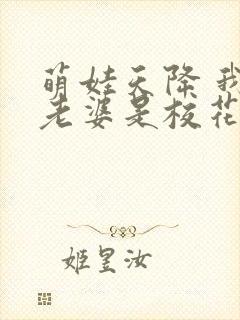 萌娃天降 我
老婆是校花
姬昱汝